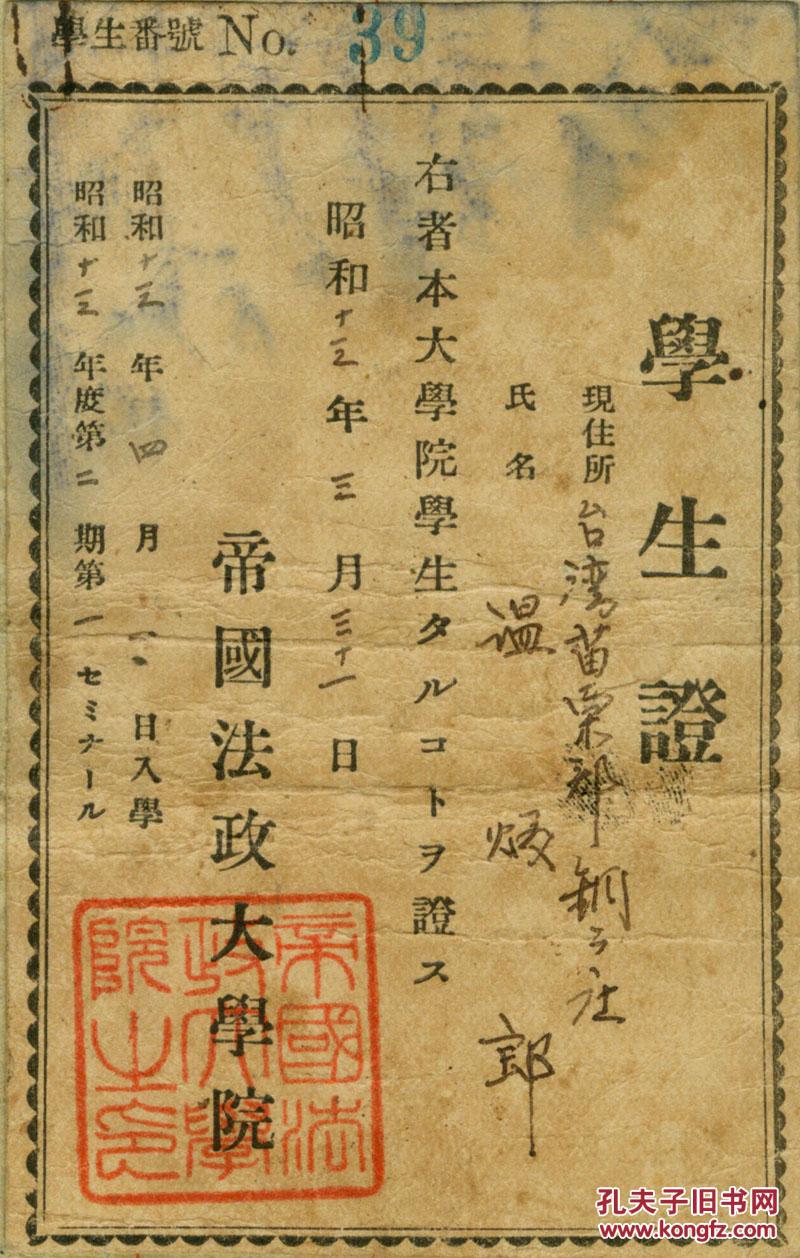 學生番號 No. 39
學生證
現住所 台湾苗栗郡銅シ社
氏名 温 郎
右者本大學院學生タルコトヲ證ス
昭和十三年三月三十一日
帝國法政大學院
昭和十三年四月一日入學
昭和十三年度第二期第一セミナール
帝國法
政大學
院之印
孔夫子旧书网
www.kongfz.com